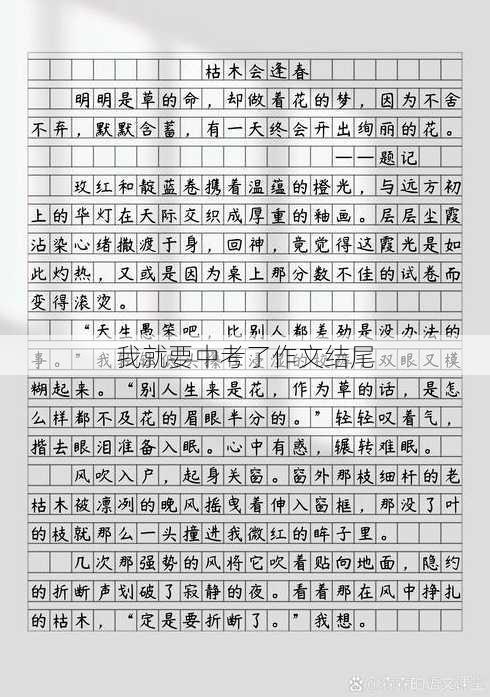 枯木会逢春
明明是草的命，却做着花的梦，因为不舍
不弃，默默含蓄，有一天终会开出绚丽的花。
——题记
玫红和靛蓝卷携着温蕴的橙光，与远方初
上的华灯在天际交织成厚重的釉画。层层尘霞
沾染心绪撒渡于身，回神，竟觉得这霞光是如
此灼热，又或是因为桌上那分数不佳的试卷而
变得滚烫。
“天生愚笨吧，比别人都差劲是没办法的
事。”我
我就要中考了作文结尾
双眼又模
糊起来。“别人生来是花，作为草的话，是怎
么样都不及花的眉眼半分的。”轻轻叹着气，
揩去眼泪准备入眠。心中有惑，辗转难眠。
风吹入户，起身关窗。窗外那枝细杆的老
枯木被凛冽的晚风摇曳着伸入窗框，那没了叶
的枝就那么一头撞进我微红的眸子里。
几次那强势的风将它吹着贴向地面，隐约
的折断声划破了寂静的夜。看着那在风中挣扎
的枯木，“定是要折断了。”我想。
@森森的语文课堂